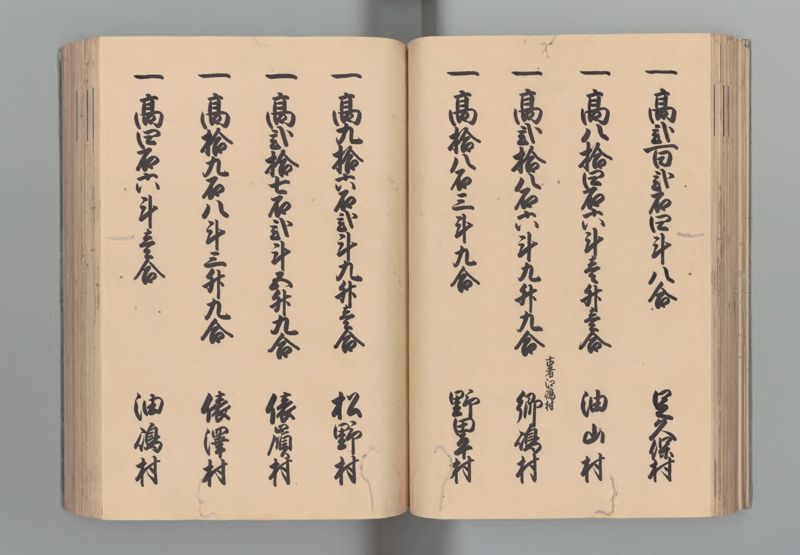 一 高弐百弐石四斗八合 足久保村
一 高八拾四石六斗壱升壱合 油山村
一 高弐拾八石六斗九升九合 郷嶋村
一 高拾八石三斗九合 野田平村
一 高九拾六石弐斗九升壱合 松野村
一 高弐拾七石弐斗五升九合 俵嶺村
一 高拾九石八斗三升九合 俵澤村
一 高四石六斗壱合 油嶋村